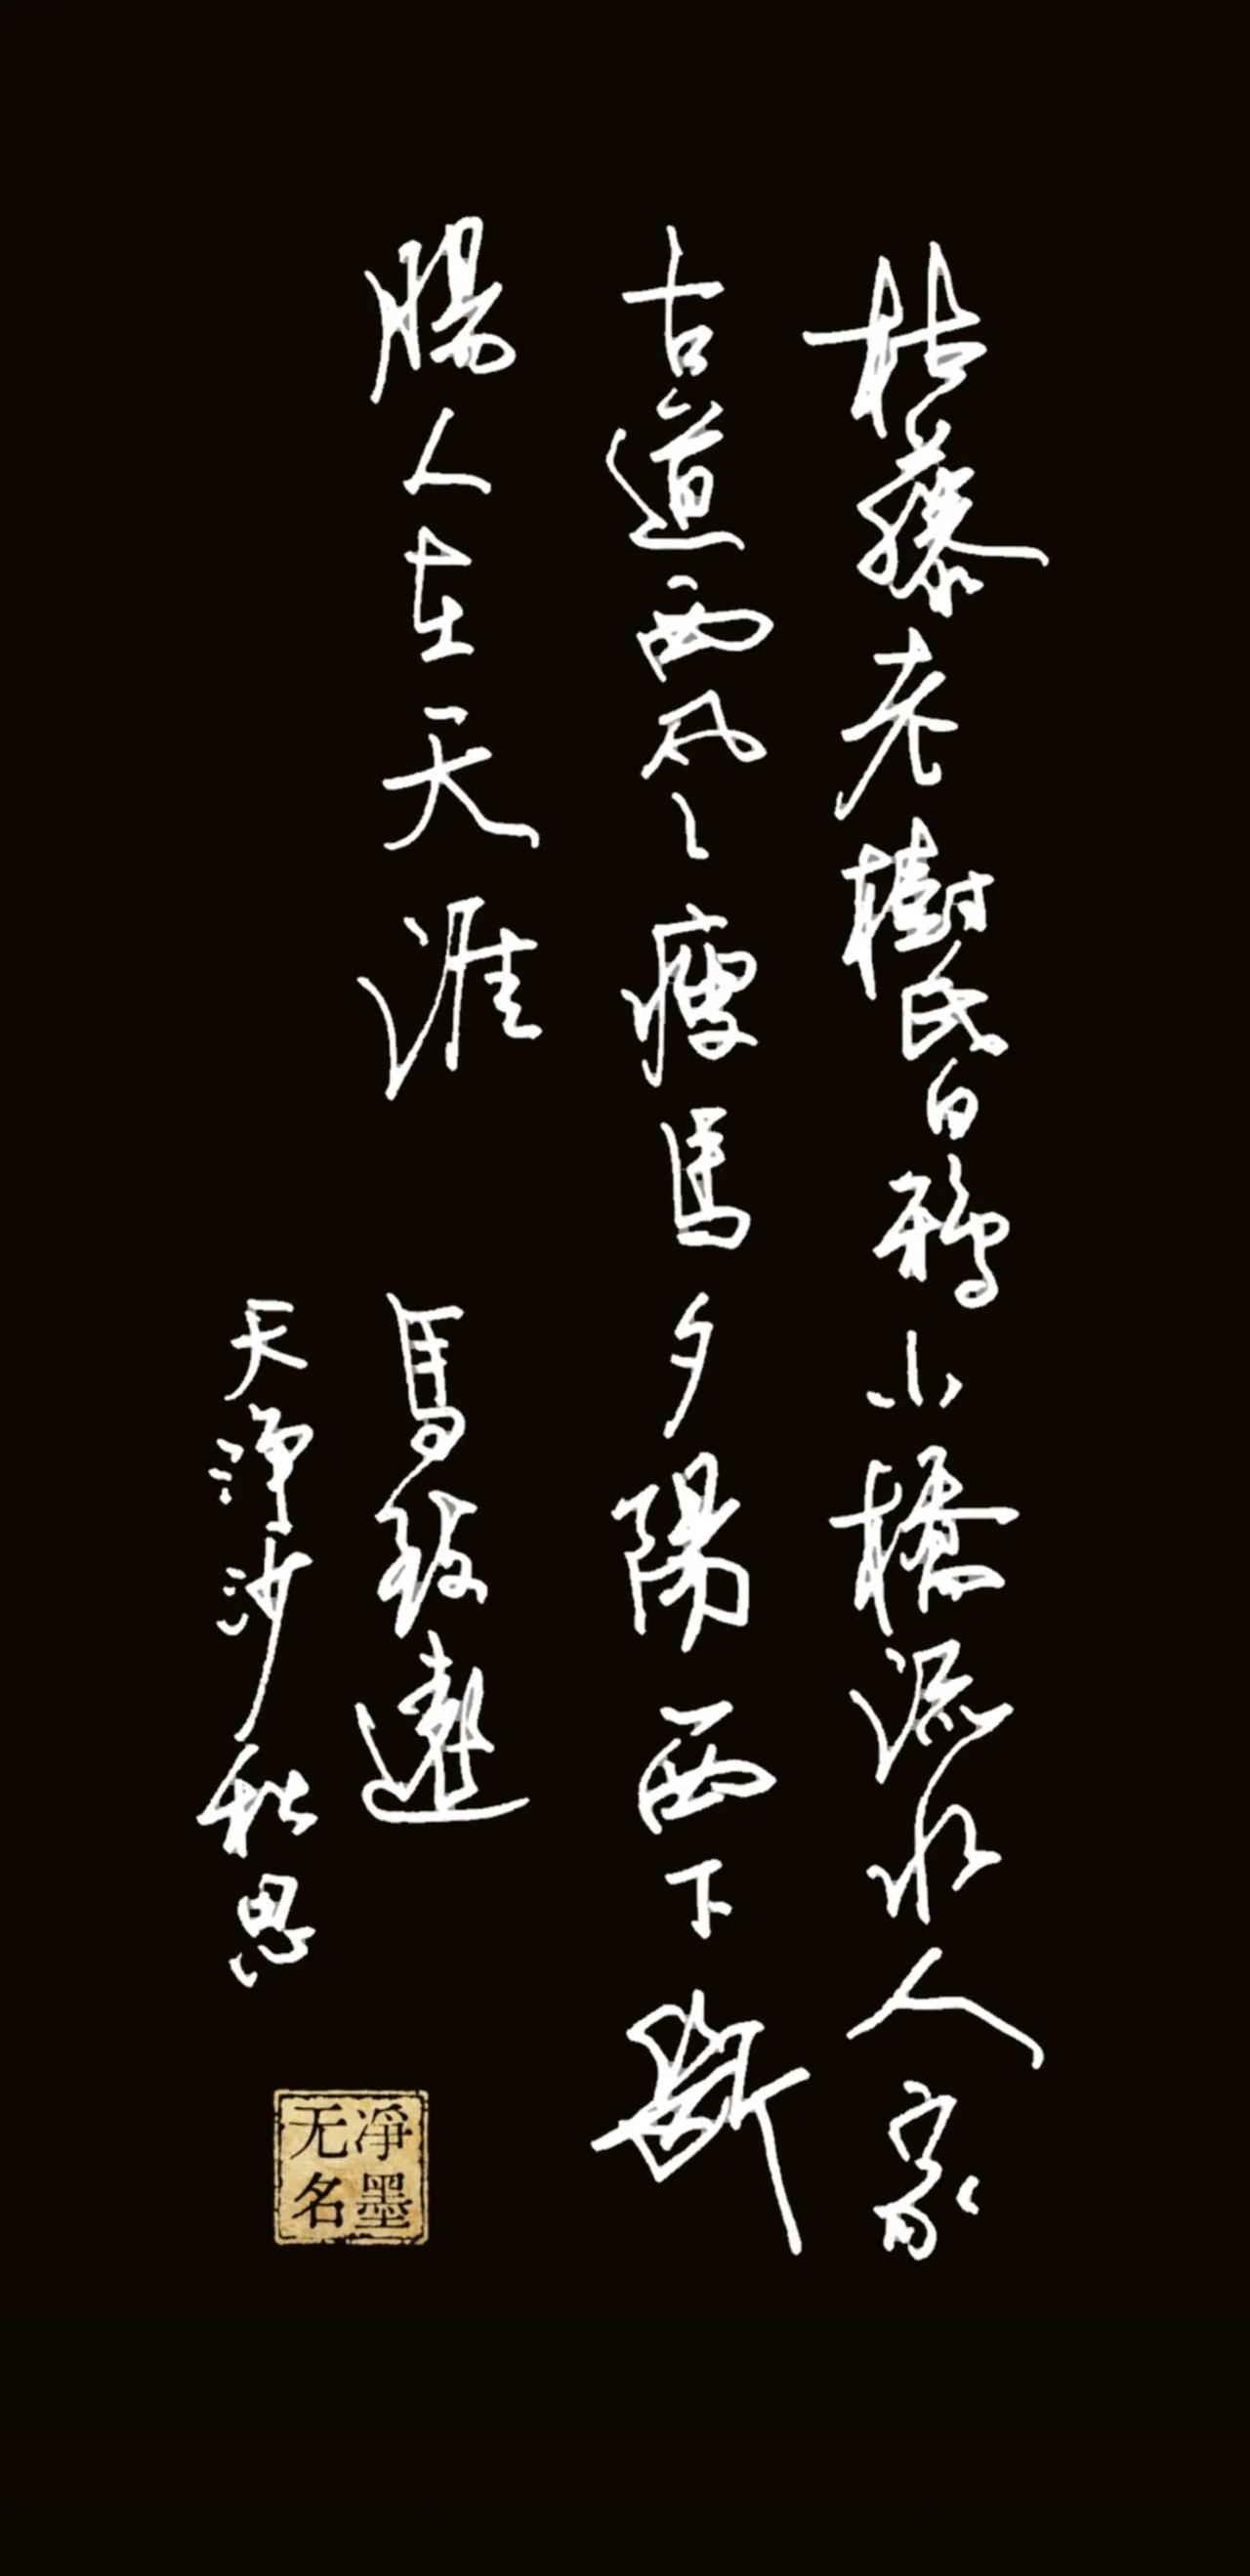 枯藤老樹昏鴉小橋流水人家
古道西风〻瘦馬夕陽西下斷
腸人在天涯 馬致遠
天淨沙秋思
净墨
无名